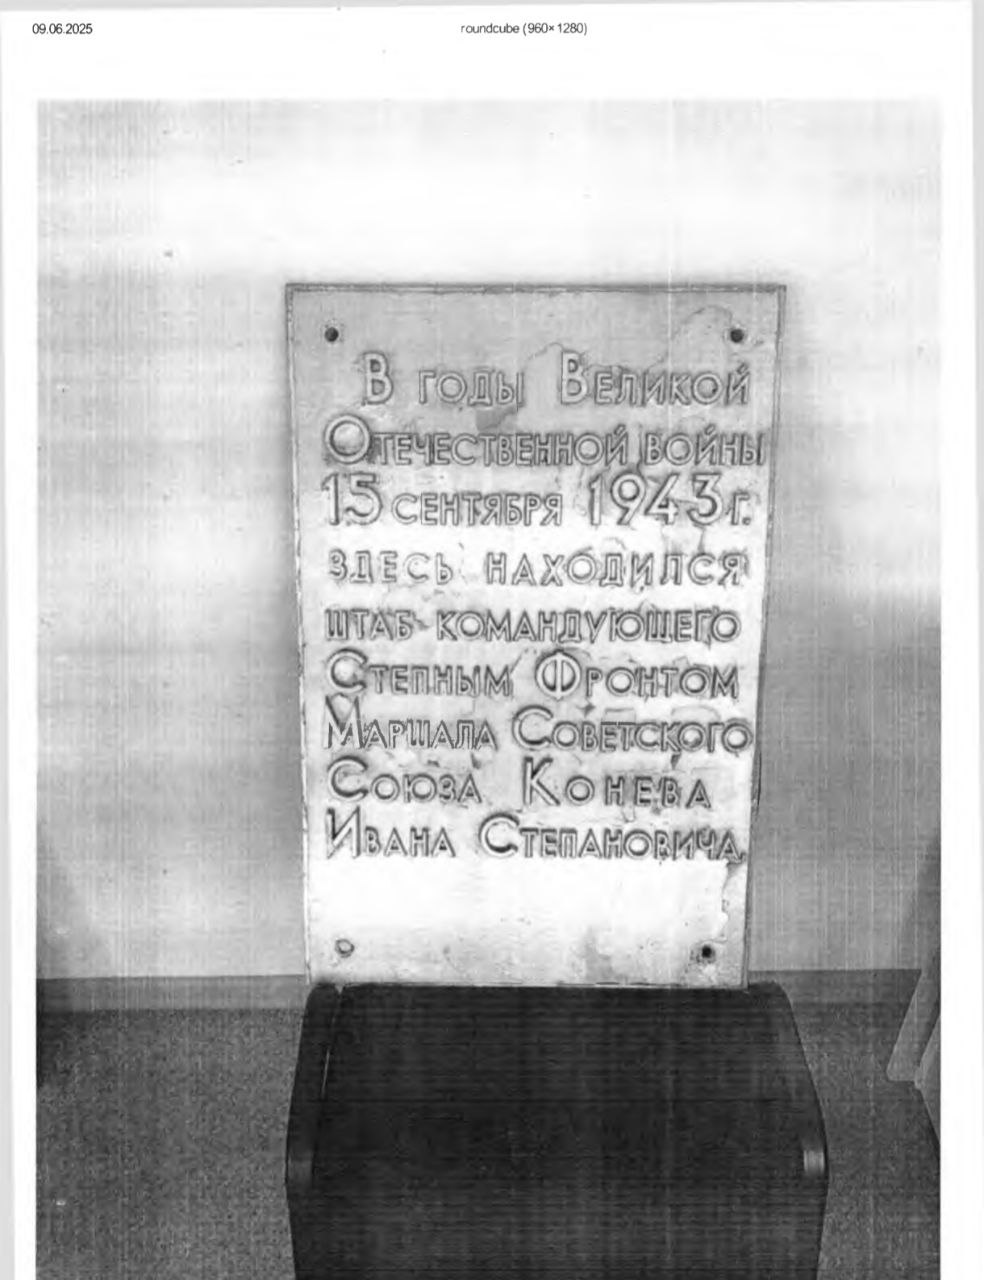 09.06.2025
roundcube (960×1280)
В годы Великой
Отечественной войны
15 сентября 1943 г.
здесь находился
штаб командующего
Степным Фронтом
Маршала Советского
Союза Конева
Ивана Степановича